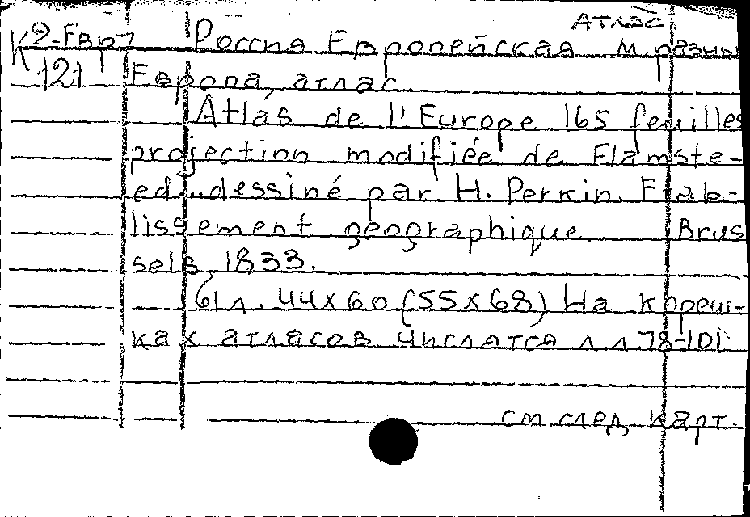 Атлас
К 2-Евр7 Россия Европейская М разны
121 Европа, атлас.
Atlas de l'Europe 165 feuilles
projection modifiée de Flamste-
ed dessiné par H. Perkin. Etab-
lissement géographique Brus
sels, 1833.
61 л. 44х60 (55х68) На кореш-
ках атласов числятся л л 78-101
см. след. карт.